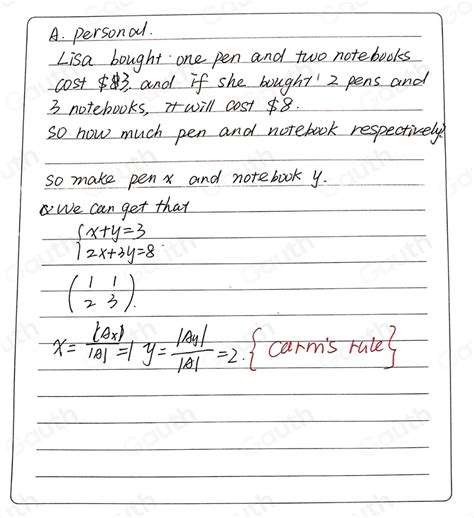 A. personal.
Lisa bought one pen and two notebooks
cost $3. and if she bought 2 pens and
3 notebooks, it will cost $8.
so how much pen and notebook respectively?
so make pen x and notebook y.
we can get that
{x+y=3
2x+3y=8.
( 1 1
2 3 ).
x = |Ax| / |A| = 1 y = |Ay| / |A| = 2. { carm's rule }